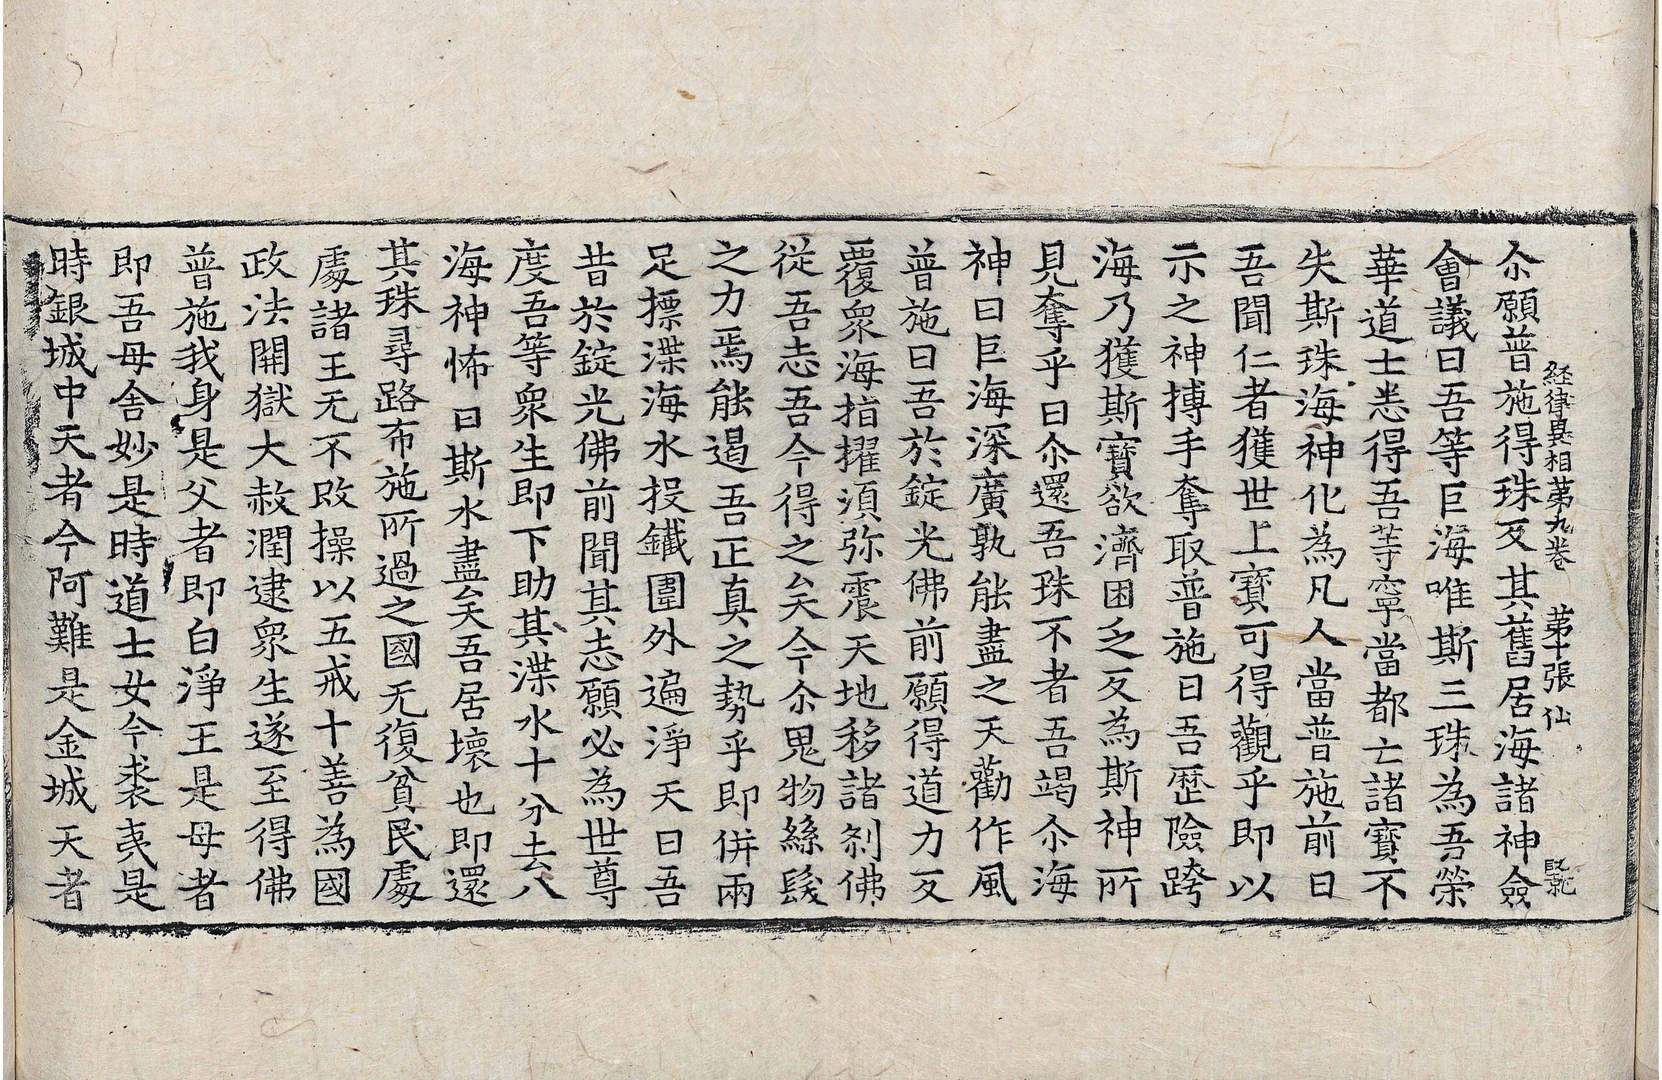 尒願普施得珠反其舊居海諸神僉
會議曰吾等巨海唯斯三珠為吾榮
華道士悉得吾等寧當都亡諸寶不
失斯珠海神化為凡人當普施前曰
吾聞仁者獲世上寶可得觀乎即以
示之神搏手奪取普施曰吾歷險跨
海乃獲斯寶欲濟困乏反為斯神所
見奪乎曰尒還吾珠不者吾竭尒海
神曰巨海深廣孰能盡之天勸作風
普施曰吾於錠光佛前願得道力反
覆衆海指擢須弥震天地移諸刹佛
從吾志吾今得之矣今尒鬼物絲髮
之力焉能遏吾正真之勢乎即併兩
足摽渫海水投鐵圍外遍淨天曰吾
昔於錠光佛前聞其志願必為世尊
度吾等衆生即下助其渫水十分去八
海神怖曰斯水盡矣吾居壞也即還
其珠尋路布施所過之國无復貧民處
處諸王无不改操以五戒十善為國
政法開獄大赦潤逮衆生遂至得佛
普施我身是父者即白淨王是母者
即吾母舍妙是時道士女今裘夷是
時銀城中天者今阿難是金城天者
経律異相第九卷 第十張 仙